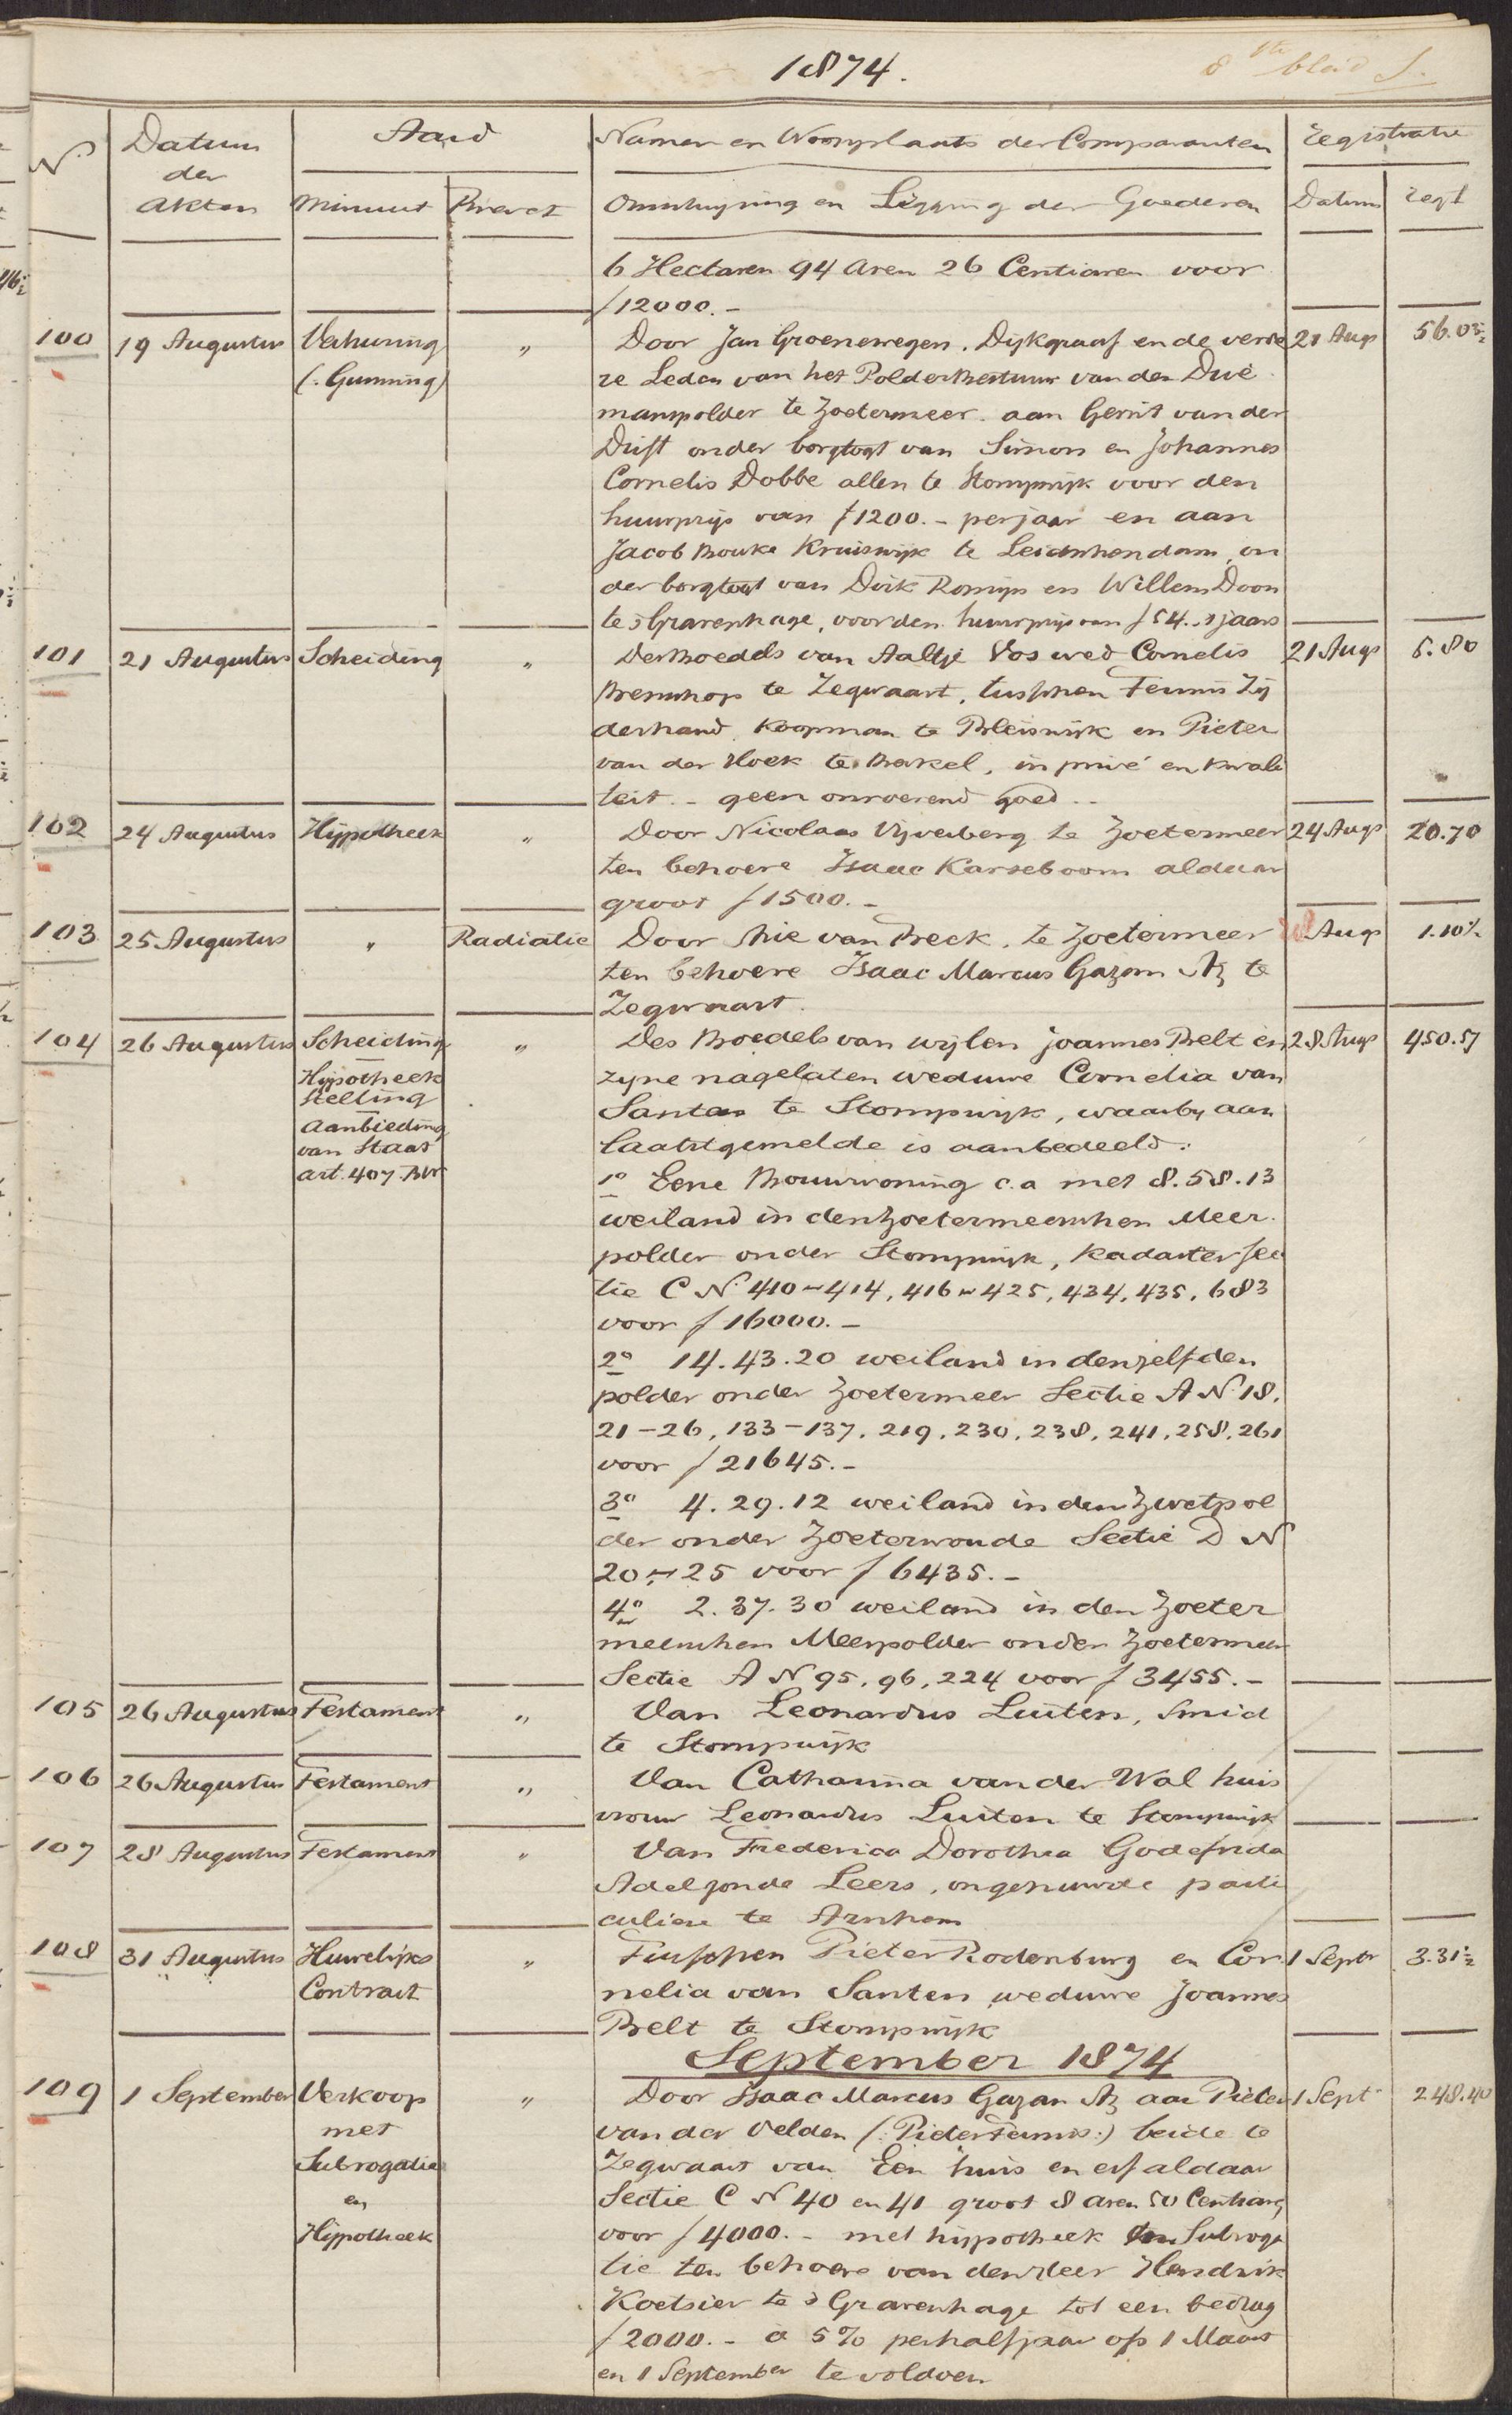 1874.
8ste blad
No
Datum der Akten
Aard
Minuut
Brevet
Namen en Woonplaats der Comparanten
Omschrijving en Ligging der Goederen
Registratie
Datum
regt
6 Hectaren 94 Aren 26 Centiaren voor
f 12000.-
100 19 Augustus Verhuring " Door Jan Groenewegen, Dijkgraaf en de verde 21 Aug 56.02½
(:Gunning) re Leden van het Polderbestuur van den Drie
manspolder te Zoetermeer. aan Gerrit van der
Drift onder borgtogt van Simon en Johannes
Cornelis Dobbe allen te Stompwijk voor den
huurprijs van f 1200.- per jaar en aan
Jacob Bouke Kruiswijk te Leidschendam, on
der borgtogt van Dirk Romijn en Willem Doon
te 's Gravenhage, voor den huurprijs van f 54.- 's jaars
101 21 Augustus Scheiding " Des Boedels van Aaltje Vos wed Cornelis 21 Aug 6.80
te Zegwaart, tusschen Teunis Zij
derhand, koopman te Bleiswijk en Pieter
van der Hoek te Barkel, in privé en kwali
teit. - geen onroerend goed. -
102 24 Augustus Hypotheek " Door Nicolaas Vijverberg te Zoetermeer 24 Aug 20.70
ten behoeve Isaac Karseboom aldaar
groot f 1500.-
103 25 Augustus " Radiatie Door Arie van Beek, te Zoetermeer Aug 1.10½
ten behoeve Isaac Marcus Gazan Az te
Zegwaart.
104 26 Augustus Scheiding " Des Boedels van wijlen Joannes Belt en 28 Aug 450.57
Hypotheek zijne nagelaten weduwe Cornelia van
stelling Santen te Stompwijk, waarbij aan
Aanbieding laatstgemelde is aanbedeeld:
van Staat
art. 407 BW 1o Eene Bouwwoning c.a met 8.58.13
weiland in den Zoetermeerschen Meer
polder onder Stompwijk, kadaster sec
tie C No 410-414, 416-425, 434, 435, 683
voor f 16000.-
2o 14.43.20 weiland in denzelfden
polder onder Zoetermeer Sectie A No 18,
21-26, 133-137, 219, 230, 238, 241, 258, 261
voor f 21645.-
3o 4.29.12 weiland in den Zwetpol
der onder Zoeterwoude Sectie D No
20-25 voor f 6435.-
4o 2.37.30 weiland in den Zoeter
meerschen Meerpolder onder Zoetermeer
Sectie A No 95, 96, 224 voor f 3455.-
105 26 Augustus Testament " Van Leonardus Luiten, Smid
te Stompwijk
106 26 Augustus Testament " Van Catharina van der Wal huis
vrouw Leonardus Luiten te Stompwijk
107 28 Augustus Testament " Van Frederica Dorothea Godefrida
Adelgonda Leers, ongehuwde parti
culiere te Arnhem
108 31 Augustus Huwelijks " Tusschen Pieter Rodenburg en Cor 1 Septr 3.31½
Contract nelia van Santen weduwe Joannes
Belt te Stompwijk
September 1874
109 1 September Verkoop " Door Isaac Marcus Gazan Az aan Pieter 1 Sept 248.40
met van der Velden (:Pieter Teunis:) beide te
Subrogatie Zegwaart van Een huis en erf aldaar
en Sectie C No 40 en 41 groot 8 aren 50 Centiaren,
Hypotheek voor f 4000.- met hypotheek en Subroga
tie ten behoeve van den Heer Hendrik
Koetsier te 's Gravenhage tot een bedrag
f 2000.- a 5% per half jaar op 1 Maart
en 1 September te voldoen